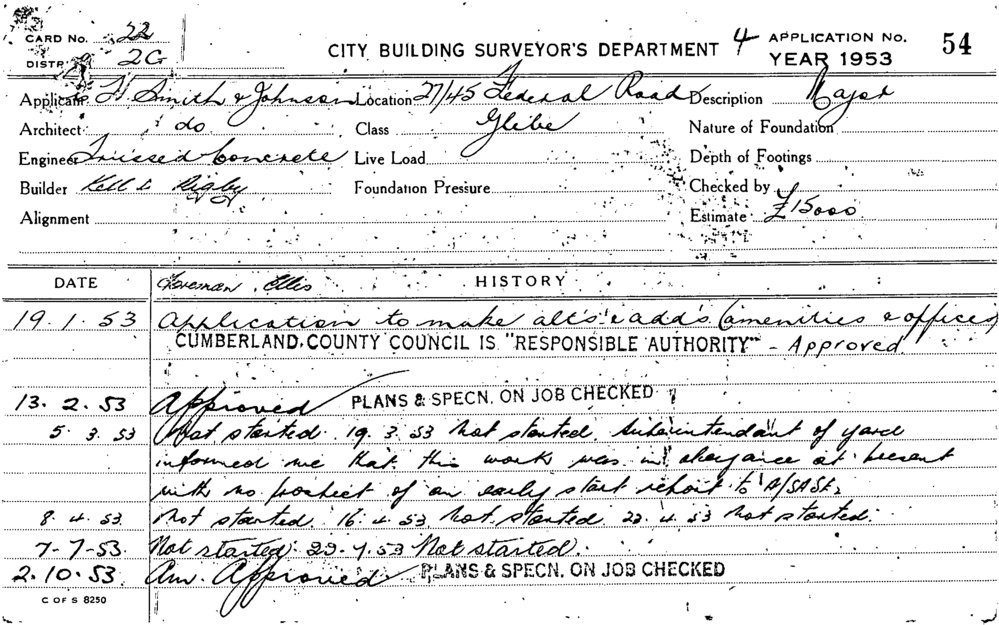 CARD No. 22
DISTR 2G
CITY BUILDING SURVEYOR'S DEPARTMENT 4 APPLICATION No. 54
YEAR 1953
Applicant Smith & Johnson Location 27/45 Federal Road Description Major
Architect do Class Glebe Nature of Foundation
Engineer Trussed Concrete Live Load Depth of Footings
Builder Kell & Rigby Foundation Pressure Checked by
Alignment Estimate £15000
DATE Foreman Ellis HISTORY
19.1.53 Application to make alts & adds (amenities & offices)
CUMBERLAND COUNTY COUNCIL IS "RESPONSIBLE AUTHORITY" - Approved
13.2.53 Approved PLANS & SPECN. ON JOB CHECKED
5.3.53 Not started. 19.3.53 Not started. Superintendant of yard
informed me that this work was in abeyance at present
with no prospect of an early start report to
8.4.53 Not started. 16.4.53 Not started. 4.53 Not started.
7-7-53. Not started. 7.53 Not started.
2.10.53. Am. Approved PLANS & SPECN. ON JOB CHECKED
C OF S 8250